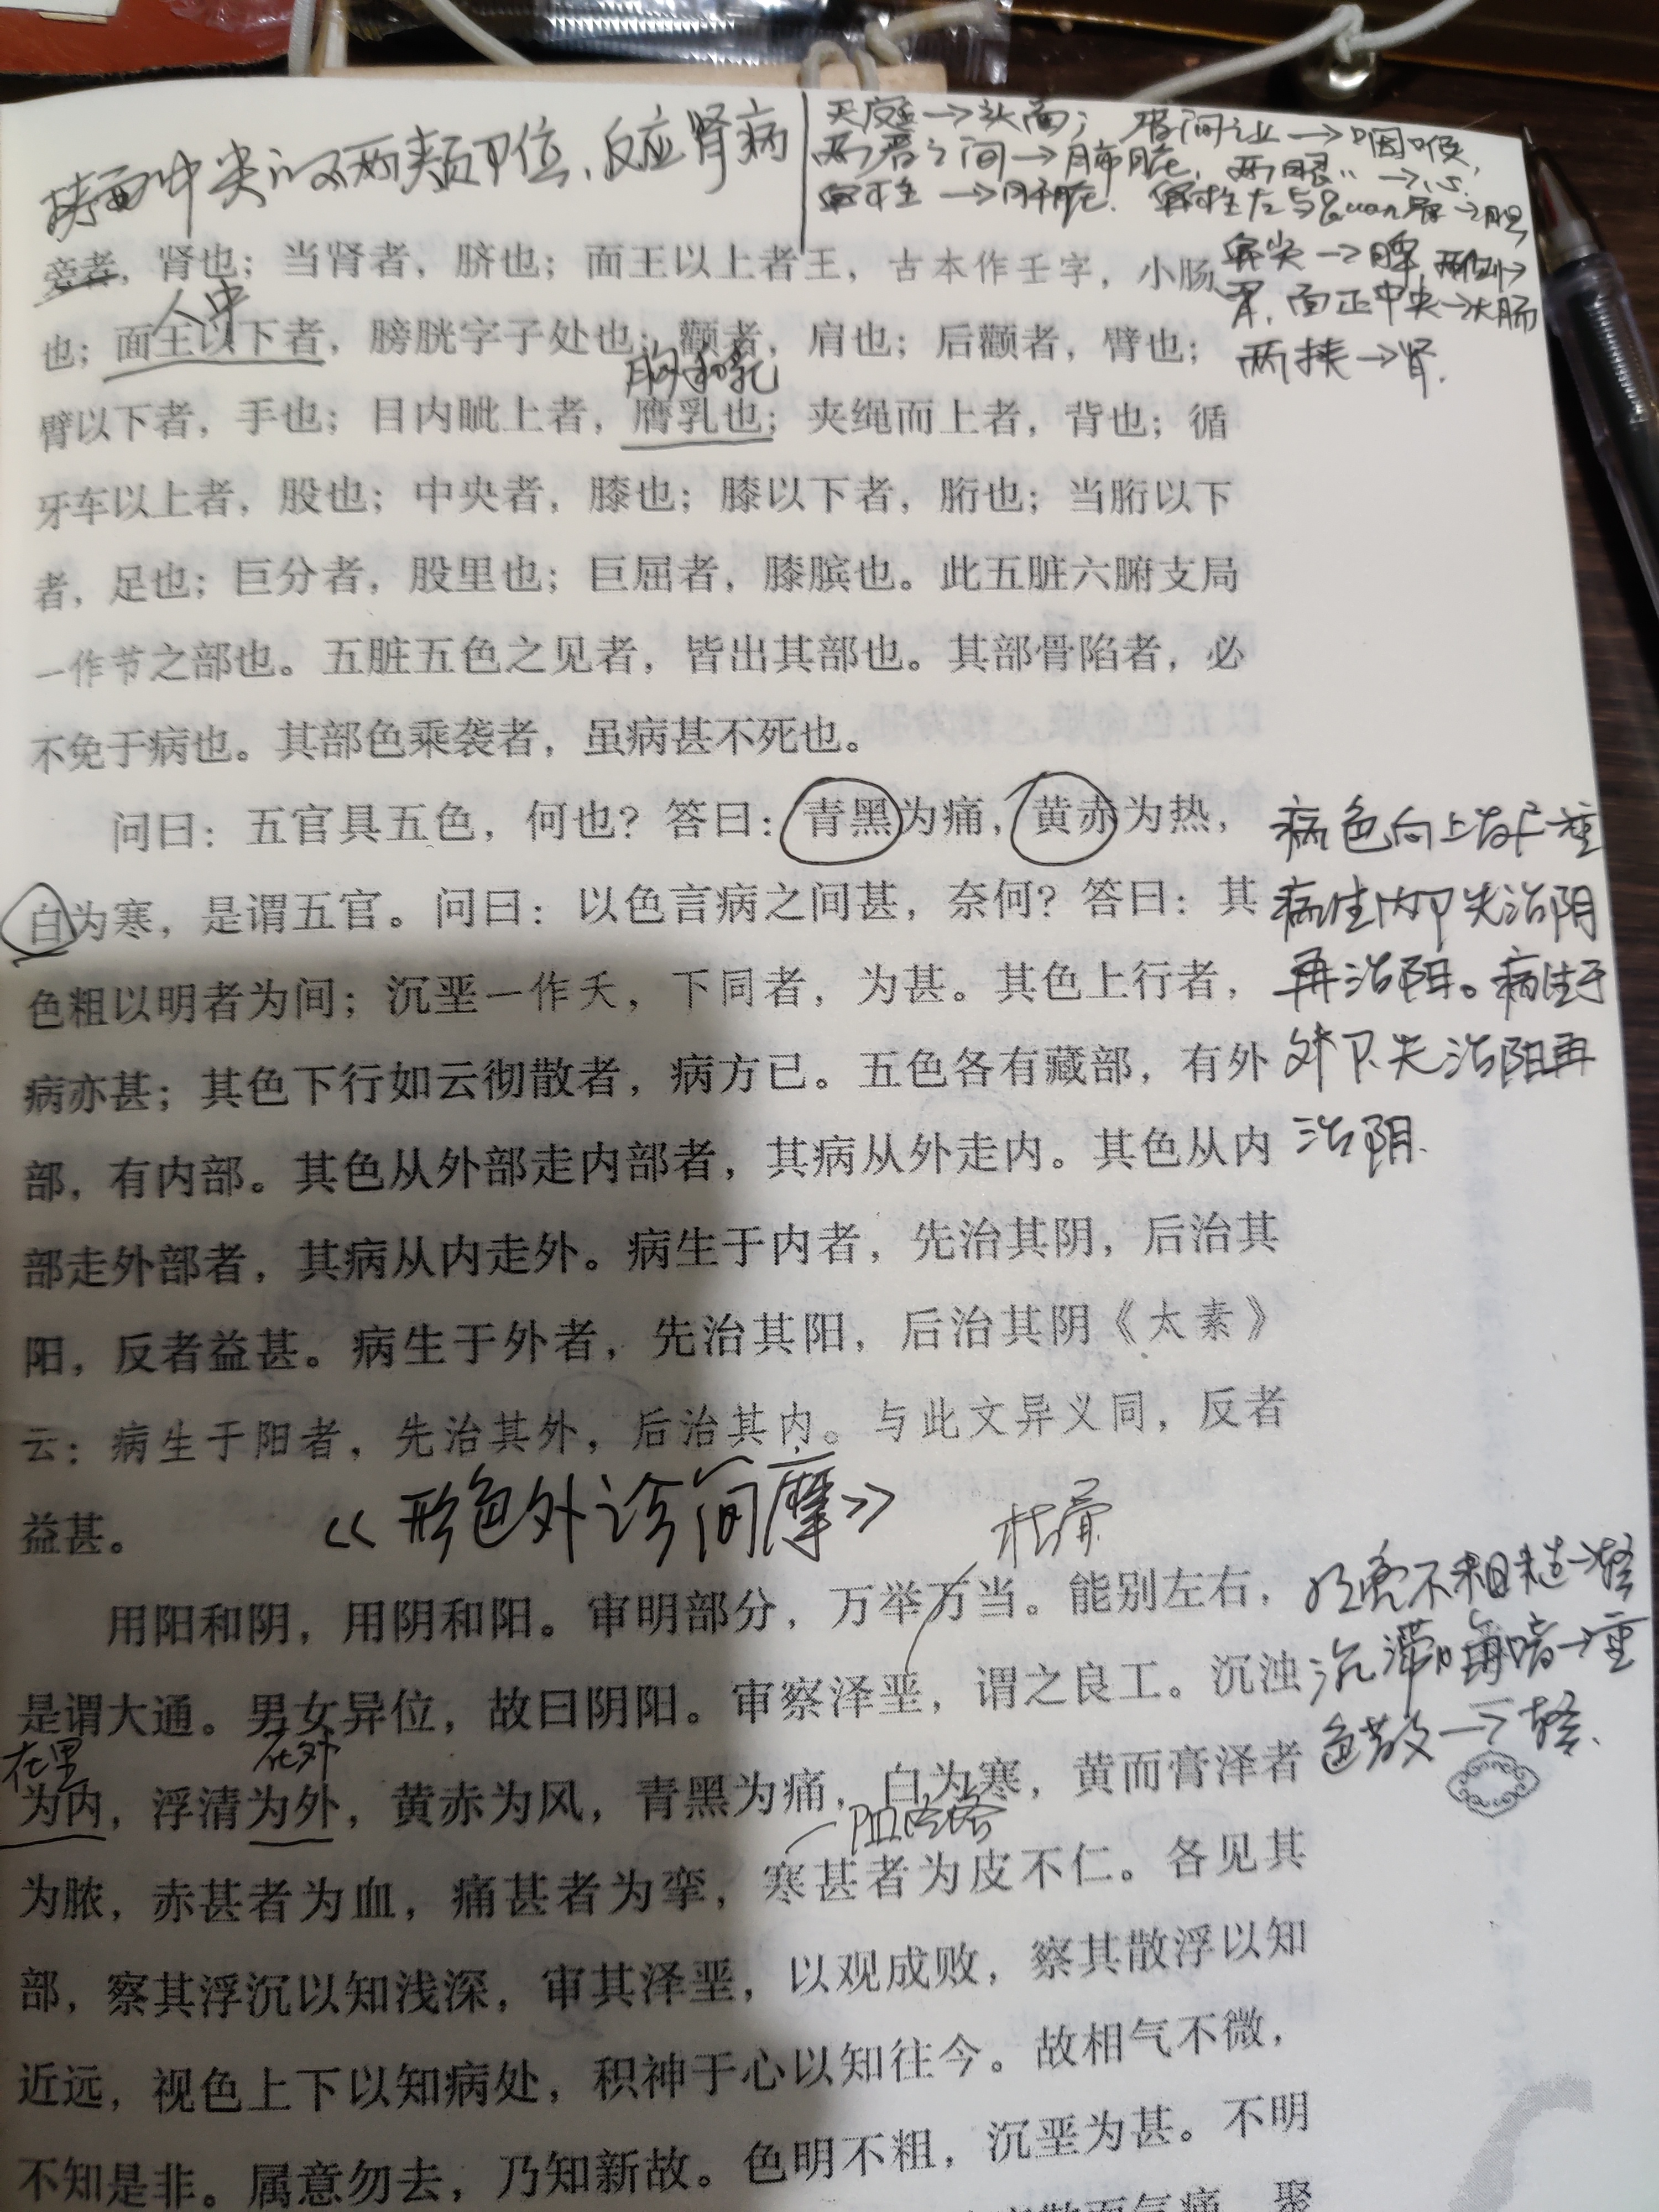 挟面中央的两颊部位,反应肾病
天庭→头面; 眉间之上→咽喉,
两眉之间→肺脏, 两眼〃→心.
鼻柱→肝脏. 鼻柱左与Quan
鼻尖→脾,两侧→
胃,面正中央→大肠
两挟→肾.
旁者,肾也;当肾者,脐也;面王以上者王,古本作壬字,小肠
人中
也;面王以下者,膀胱字子处也;颧者,肩也;后颧者,臂也;
胸和乳
臂以下者,手也;目内眦上者,膺乳也;夹绳而上者,背也;循
牙车以上者,股也;中央者,膝也;膝以下者,胻也;当胻以下
者,足也;巨分者,股里也;巨屈者,膝膑也。此五脏六腑支局
一作节之部也。五脏五色之见者,皆出其部也。其部骨陷者,必
不免于病也。其部色乘袭者,虽病甚不死也。
问曰:五官具五色,何也?答曰:青黑为痛,黄赤为热,
白为寒,是谓五官。问曰:以色言病之间甚,奈何?答曰:其
色粗以明者为间;沉垩一作夭,下同者,为甚。其色上行者,
病亦甚;其色下行如云彻散者,病方已。五色各有藏部,有外
部,有内部。其色从外部走内部者,其病从外走内。其色从内
部走外部者,其病从内走外。病生于内者,先治其阴,后治其
阳,反者益甚。病生于外者,先治其阳,后治其阴《太素》
云:病生于阳者,先治其外,后治其内。与此文异义同,反者
益甚。
病色向上发厂重
病生内卩先治阴
再治阳。病生于
外卩.先治阳再
治阴.
《形色外诊简摩》
枯骨
用阳和阴,用阴和阳。审明部分,万举万当。能别左右,
是谓大通。男女异位,故曰阴阳。审察泽垩,谓之良工。沉浊
在里 在外
为内,浮清为外,黄赤为风,青黑为痛,白为寒,黄而膏泽者
为脓,赤甚者为血,痛甚者为挛,寒甚者为皮不仁。各见其
部,察其浮沉以知浅深,审其泽垩,以观成败,察其散浮以知
近远,视色上下以知病处,积神于心以知往今。故相气不微,
不知是非。属意勿去,乃知新故。色明不粗,沉垩为甚。不明
沉滞晦暗→重
色散→轻.